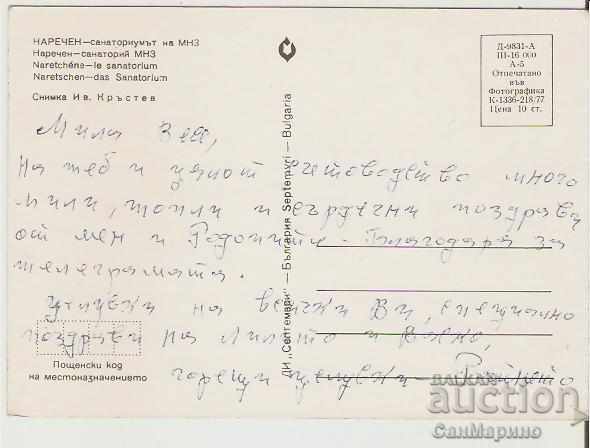 НАРЕЧЕН—санаториумът на МНЗ
Наречен—санаторий МНЗ
Naretchène—le sanatorium
Naretschen—das Sanatorium
Снимка Ив. Кръстев
Д-9831-А
III-16 000
А-5
Отпечатано
във
Фотографика
К-1336-218/77
Цена 10 ст.
Мила Зея,
На теб и целот счетоводство много
мили, топли и сърдечни поздрави
от мен и Родопите. Благодаря за
телеграмата.
Целувки на всички Ви, специално
поздрави на Милято и
горещи целувки —
ДИ „Септември" — България Septemvri — Bulgaria
Пощенски код
на местоназначението
BALKAN
auction
СанМарино